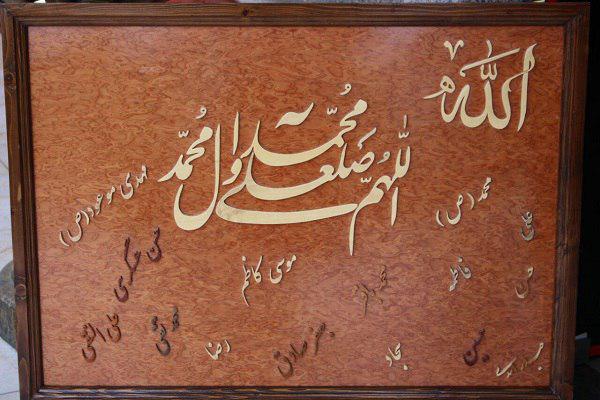 الله
اللهم صل علی محمد و آل محمد
محمد (ص)
علی
مهدی موعود (ص)
فاطمه
حسن
حسن عسگری
موسی کاظم
محمد باقر
علی النقی
محمد تقی
رضا
جعفر صادق
سجاد
حسین